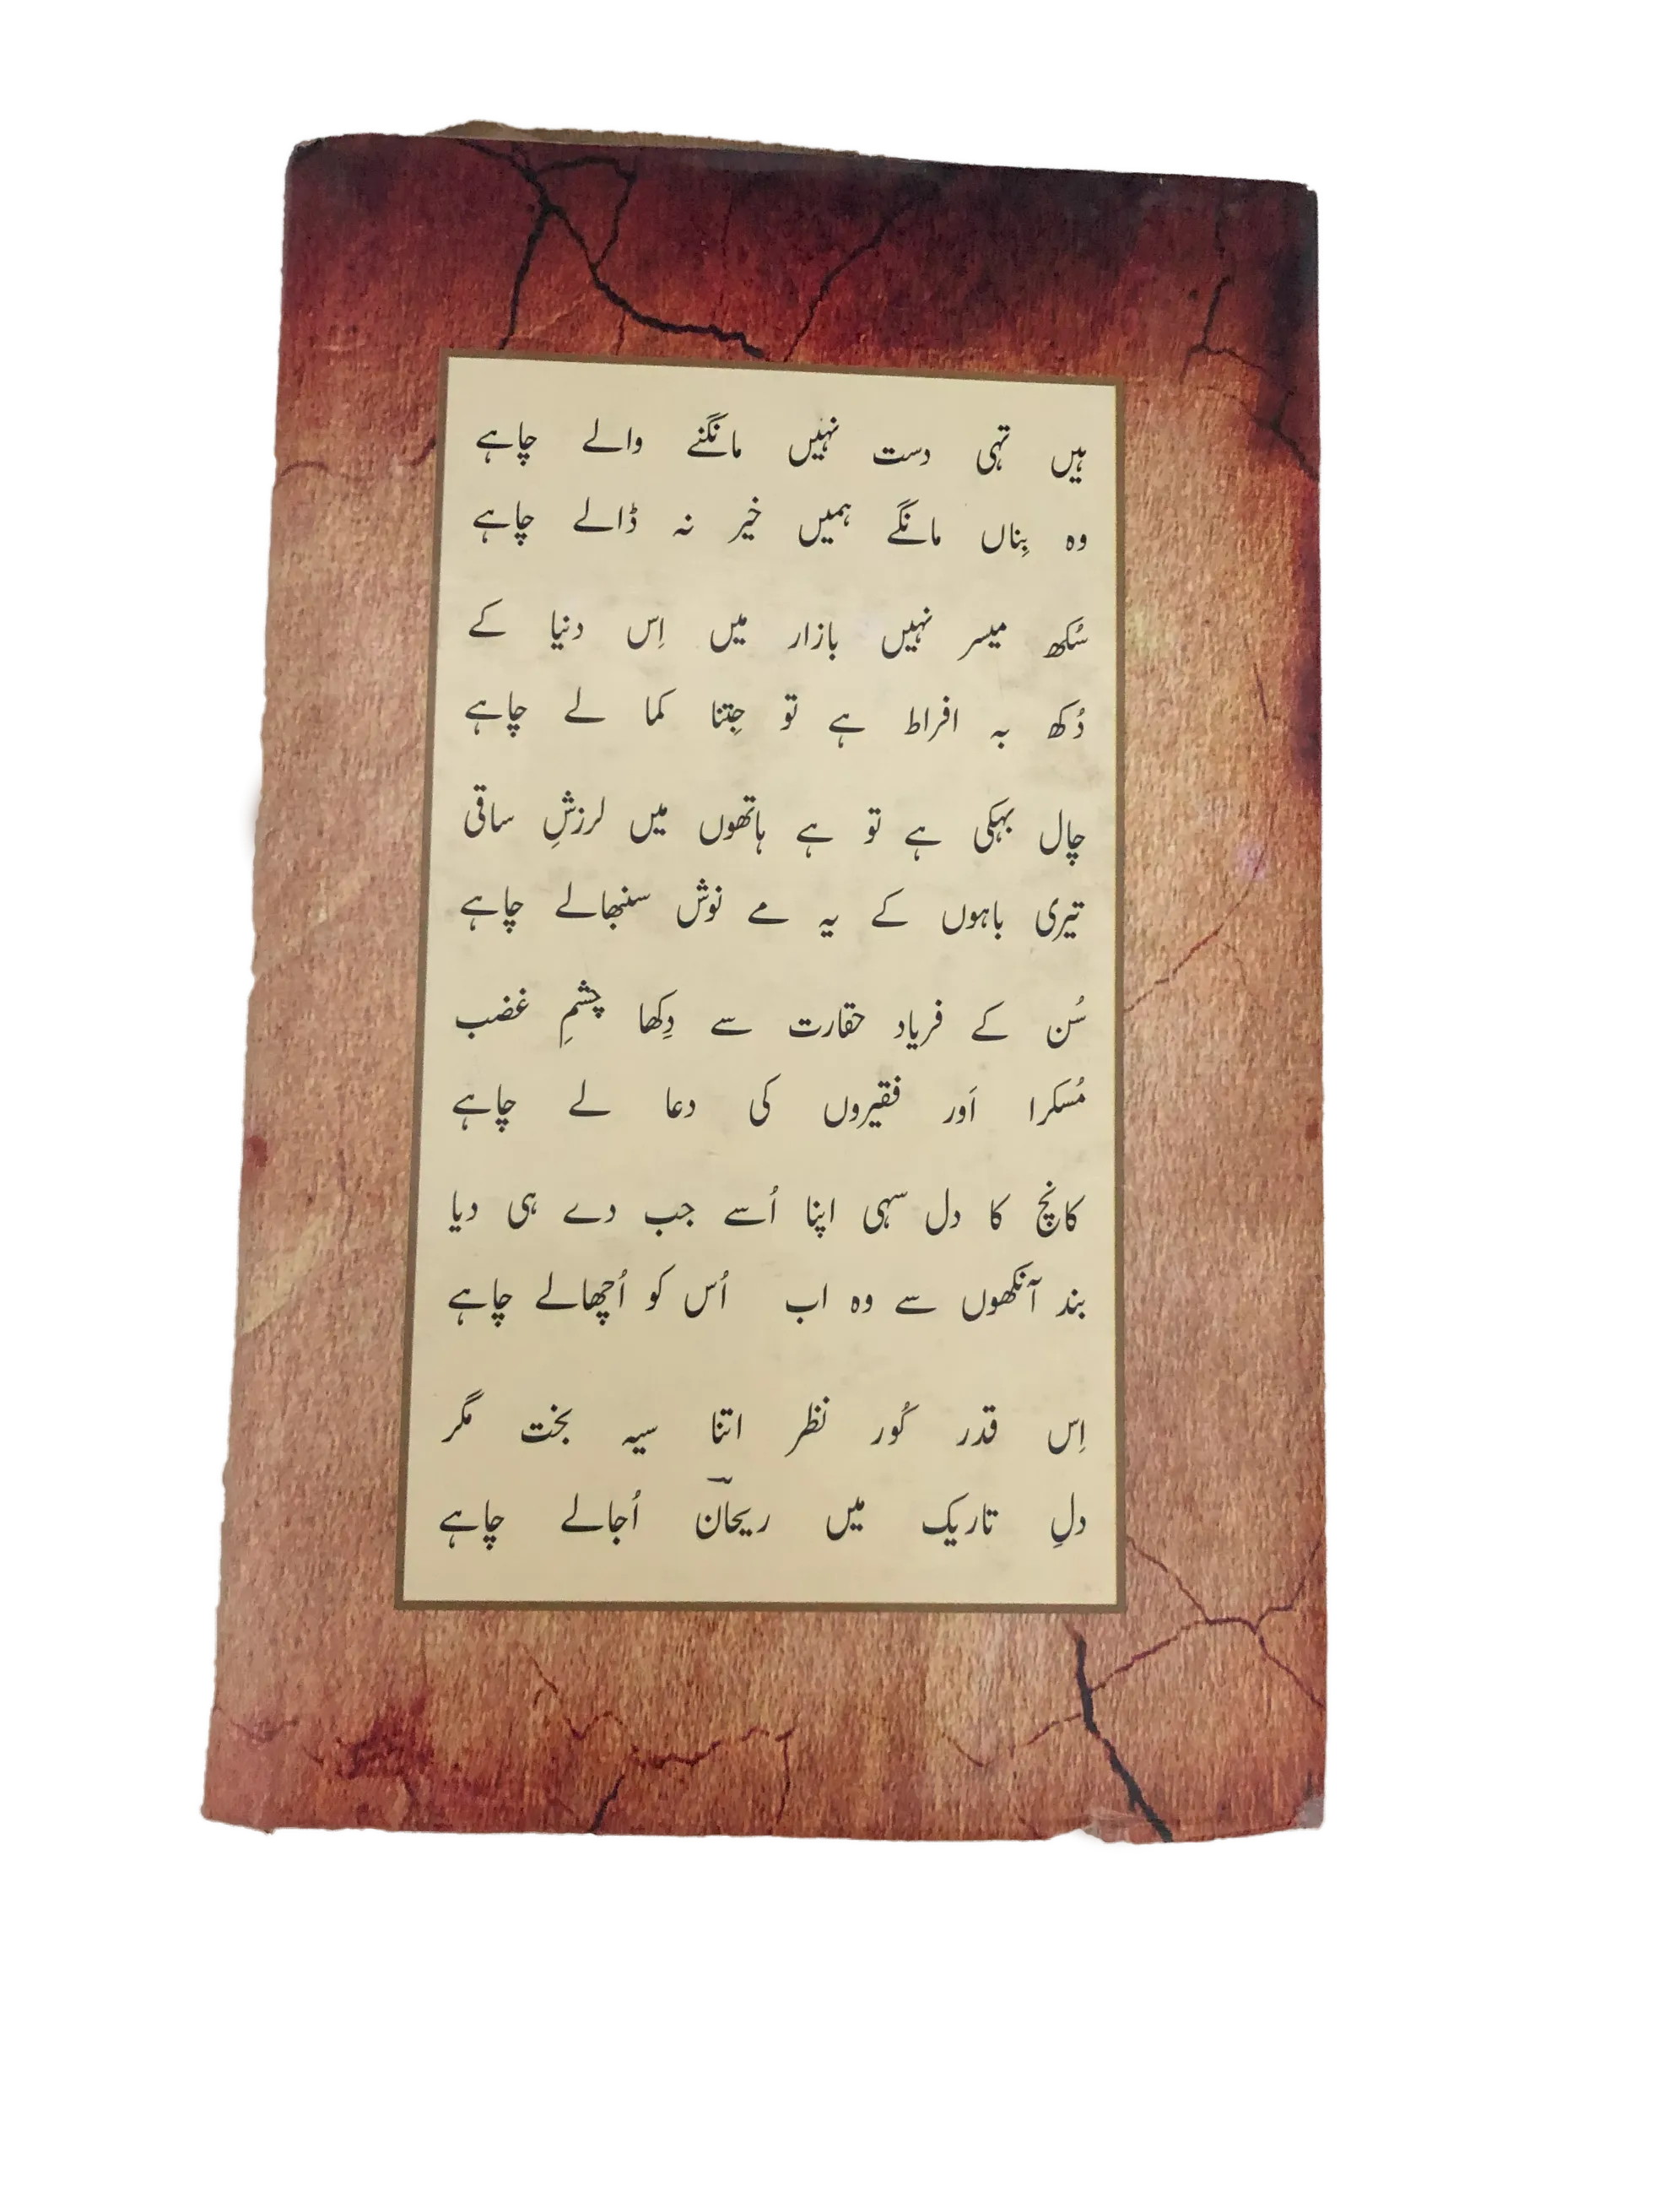 ہیں تہی دست نہیں مانگنے والے چاہے
وہ بِناں مانگے ہمیں خیر نہ ڈالے چاہے
سُکھ میسر نہیں بازار میں اِس دنیا کے
دُکھ بہ افراط ہے تو جِتنا کما لے چاہے
چال بہکی ہے تو ہے ہاتھوں میں لرزشِ ساقی
تیری باہوں کے یہ مے نوش سنبھالے چاہے
سُن کے فریاد حقارت سے دِکھا چشمِ غضب
مُسکرا اَور فقیروں کی دعا لے چاہے
کانچ کا دل سہی اپنا اُسے جب دے ہی دیا
بند آنکھوں سے وہ اب اُس کو اُچھالے چاہے
اِس قدر کُور نظر اتنا سیہ بخت مگر
دلِ تاریک میں ریحانؔ اُجالے چاہے